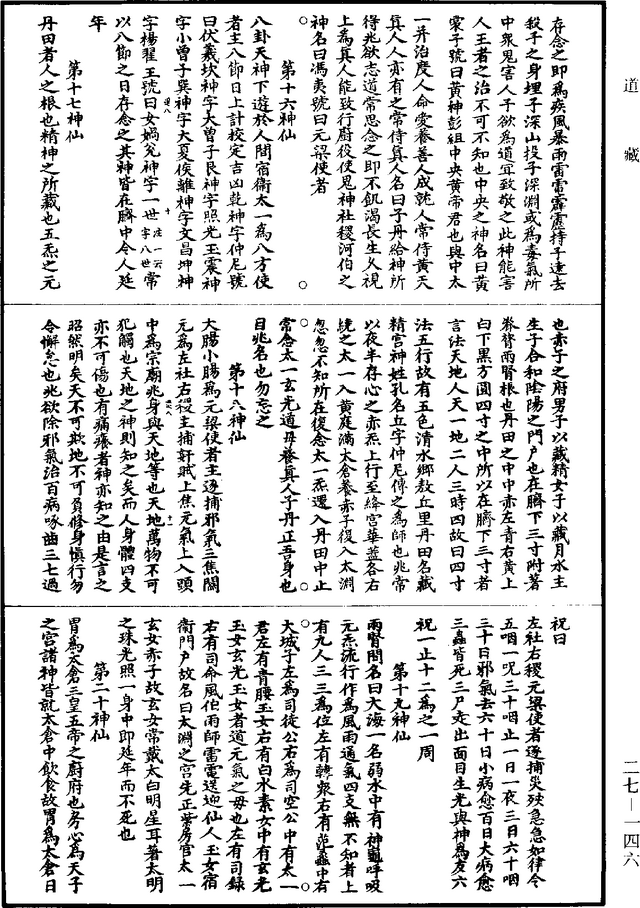 道藏
存念之即為疾風暴雨雷電霹靂持子遠去
殺子之身埋子深山投子深淵或為毒氣所
中衆鬼害人子欲為道宜致敬之此神能害
人王者之治不可不知也中央之神名曰黃
裳子號曰黃神彭組中央黃帝君也與中太
一并治度人命愛養善人成就人常侍黃天
真人人亦有之常侍真人名曰子丹給神所
得兆欲志道常思念之即不飢渴長生久視
上為真人能致行廚役使鬼神社稷河伯之
神名曰馮夷號曰元梁使者
第十六神仙
八卦天神下遊於人間宿衛太一為八方使
者主八節日上計校定吉凶乾神字仲尼號
曰伏羲坎神字大曾子艮神字照光玉震神
字小曾子巽神字大夏侯離神字文昌坤神
字楊翟王號曰女媧兊神字一世常
以八節之日存念之其神皆在臍中令人延
年
第十七神仙
丹田者人之根也精神之所藏也五炁之元
也赤子之府男子以藏精女子以藏月水主
生子合和陰陽之門戶也在臍下三寸附著
脊膂兩腎根也丹田之中中赤左青右黃上
白下黑方圓四寸之中所以在臍下三寸者
言法天地人天一地二人三時四故曰四寸
法五行故有五色清水鄉敖丘里丹田名藏
精宮神姓孔名丘字仲尼傳之為師也兆常
以夜半存心之赤炁上行至絳宮華蓋各右
繞之太一入黃庭滿太倉養赤子復入太淵
忽忽不知所在復念太一炁還入丹田中止
常念太一玄光道母養真人子丹正吾身也
自兆名也勿忘之
第十八神仙
大腸小腸為元梁使者主逐捕邪氣三焦關
元為左社右稷主捕奸賊上焦元氣上入頭
中為宗廟兆身與天地等也天地萬物不可
犯觸也天地之神則知之矣而人身體四支
亦不可傷也有痛癢者神亦知之由是言之
昭然明矣天不可欺地不可負修身慎行勿
令懈怠也兆欲除邪氣治百病啄齒三七過
祝曰
左社右稷元梁使者逐捕災殃急急如律令
五咽一呪三十咽止一日一夜三日六十咽
三十日邪氣去六十日小病愈百日大病愈
三蟲皆死三尸走出面目生光與神為友六
祝一止十二為之一周
第十九神仙
兩腎間名曰大海一名弱水中有神龜呼吸
元炁流行作為風雨通氣四支無不知者上
有九人三三為位左有韓衆右有范蠡中有
大城子左為司徒公右為司空公中有太一
君左有青腰玉女右有白水素女中有玄光
玉女玄光玉女者道元氣之母也左有司錄
右有司命風伯雨師雷電送迎仙人玉女宿
衛門戶故名曰太淵之宮先正紫房宮太一
玄女赤子故玄女常戴太白明星耳著太明
之珠光照一身中即延年而不死也
第二十神仙
胃為太倉三皇五帝之廚府也房心為天子
之宮諸神皆就太倉中飲食故胃為太倉日
二七—一四六